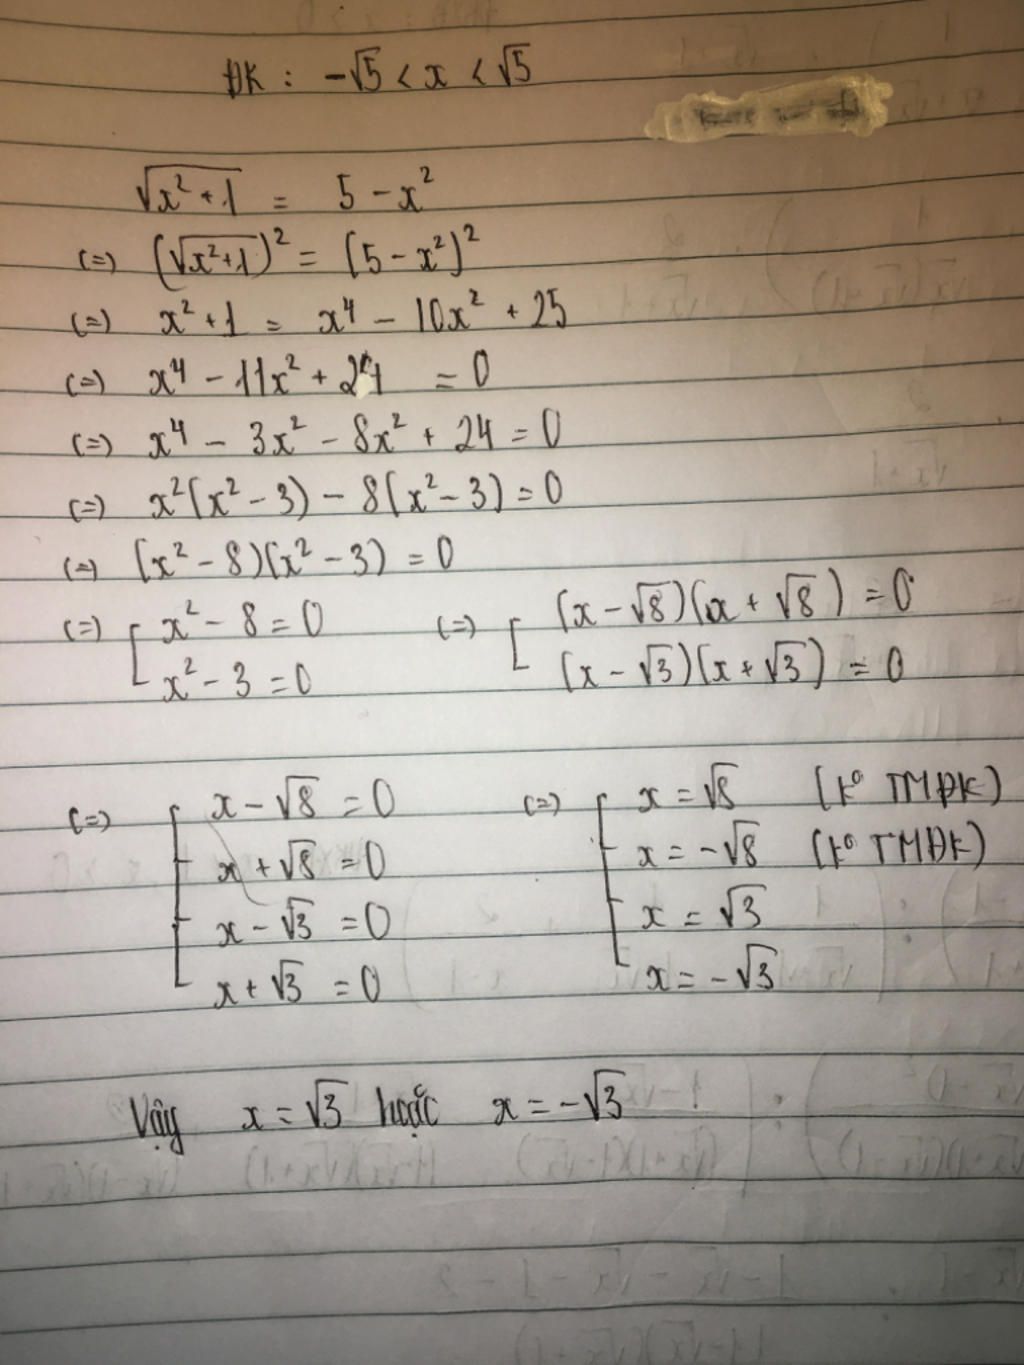 ĐK : -√5 < x < √5
√x² + 1 = 5 - x²
(=) (√x²+1)² = (5 - x²)²
(=) x² + 1 = x⁴ - 10x² + 25
(=) x⁴ - 11x² + 24 = 0
(=) x⁴ - 3x² - 8x² + 24 = 0
(=) x²(x² - 3) - 8(x² - 3) = 0
(=) (x² - 8)(x² - 3) = 0
(=) [ x² - 8 = 0 (=) [ (x - √8)(x + √8) = 0
x² - 3 = 0 (x - √3)(x + √3) = 0
(=) [ x - √8 = 0 (=) [ x = √8 (k° TMĐK)
x + √8 = 0 x = -√8 (k° TMĐK)
x - √3 = 0 x = √3
x + √3 = 0 x = -√3
Vậy x = √3 hoặc x = -√3